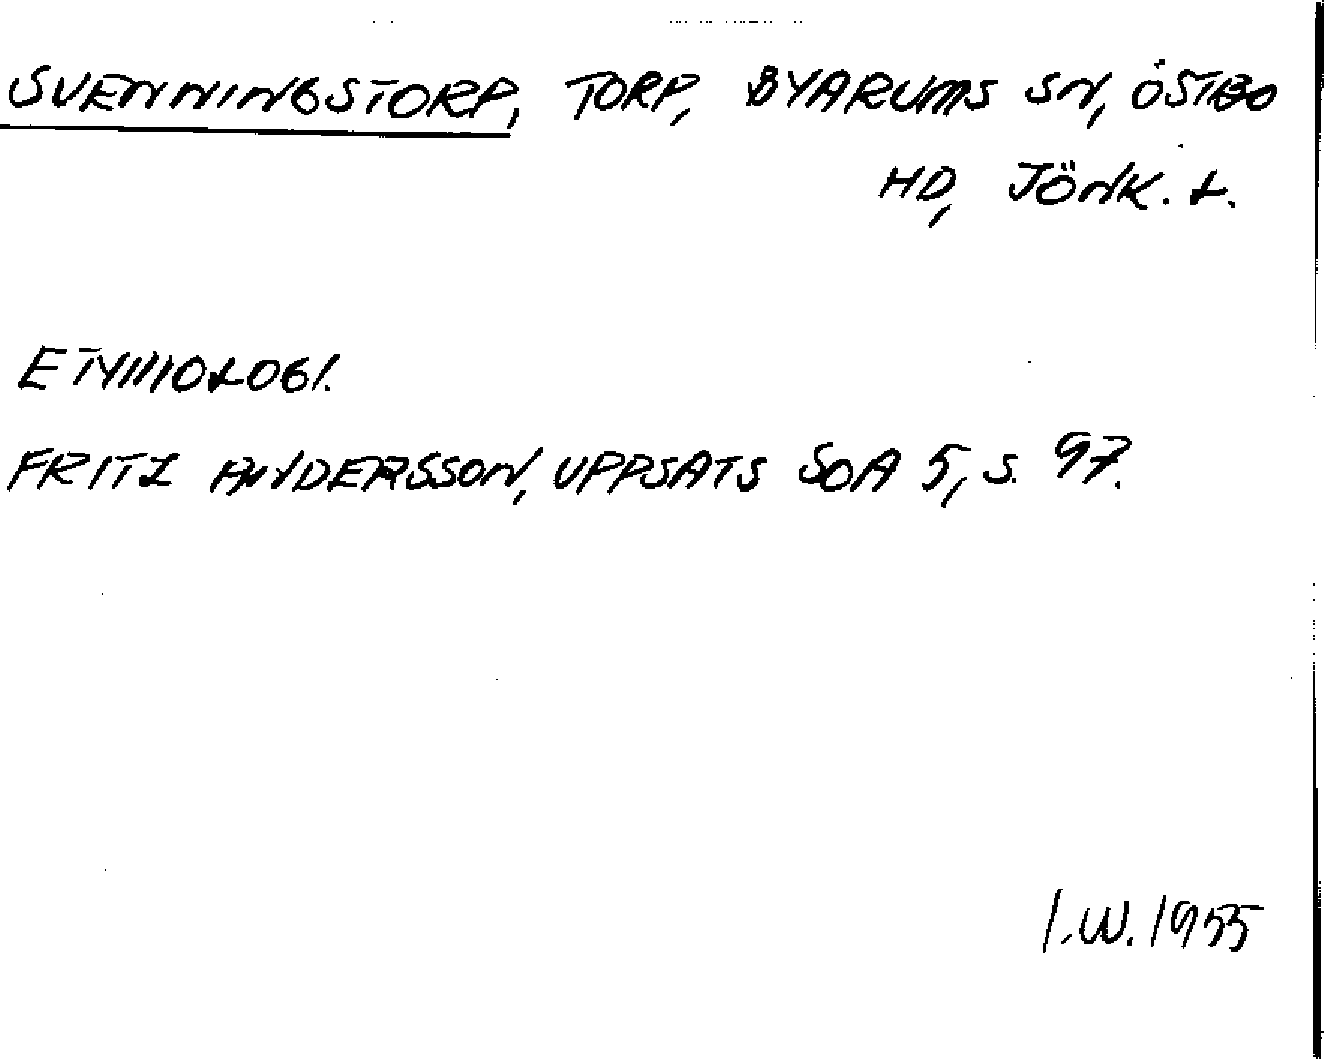 SVENNINGSTORP, TORP, BYARUMS SN, ÖSTBO
HD, JÖNK. L.
ETYMOLOGI.
FRITZ ANDERSSON, UPPSATS SOA 5, S. 97.
I.W. 1955